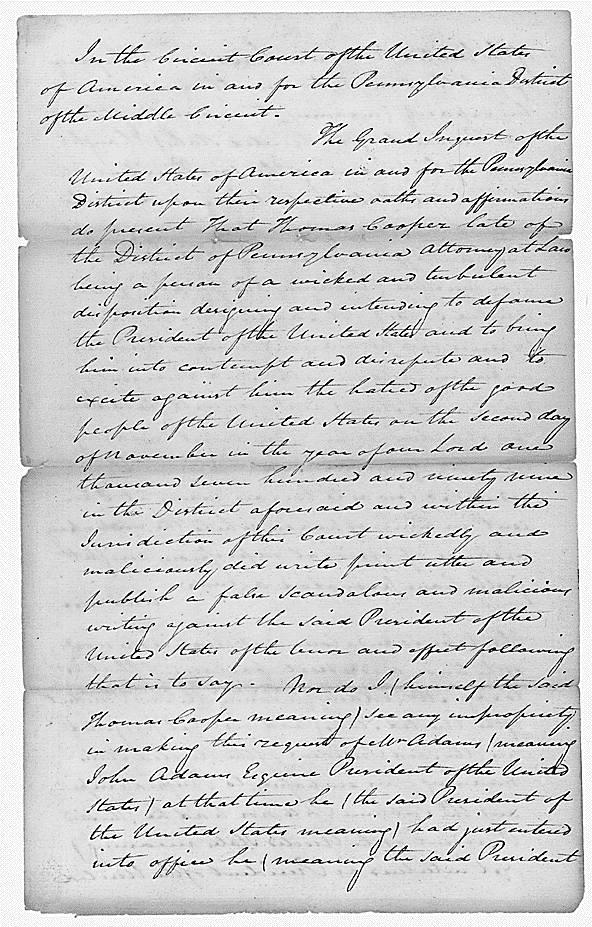 In the Circuit Court of the United States
of America in and for the Pennsylvania District
of the Middle Circuit.
The Grand Inquest of the
United States of America in and for the Pennsylvania
District upon their respective oaths and affirmations
do present That Thomas Cooper late of
the District of Pennsylvania Attorney at Law
being a person of a wicked and turbulent
disposition designing and intending to defame
the President of the United States and to bring
him into contempt and disrepute and to
excite against him the hatred of the good
people of the United States on the second day
of November in the year of our Lord one
thousand seven hundred and ninety nine
in the District aforesaid and within the
Jurisdiction of this Court wickedly and
maliciously did write print utter and
publish a false scandalous and malicious
writing against the said President of the
United States of the tenor and effect following
that is to say. Nor do I (himself the said
Thomas Cooper meaning) see any impropriety
in making this request of Mr Adams (meaning
John Adams Esquire President of the United
States) at that time he (the said President of
the United States meaning) had just entered
into office he (meaning the said President